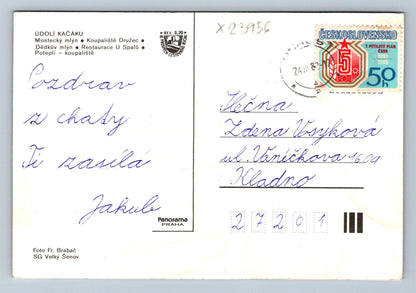 ÚDOLÍ KAČÁKU
Mostecký mlýn • Koupaliště Družec •
Dědkův mlýn • Restaurace U Spalů •
Poteplí – koupaliště
Kčs 0,20
X 23956
ČESKOSLOVENSKO
7. PĚTILETÝ PLÁN
ČSSR
5
50 h
Pozdrav
z chaty
Ti zasílá
Jakub
Slečna
Zdena Vosyková
ul. Vaníčkova 1609
Kladno
27201
Panorama
PRAHA
Foto Fr. Brabač
SG Velký Šenov